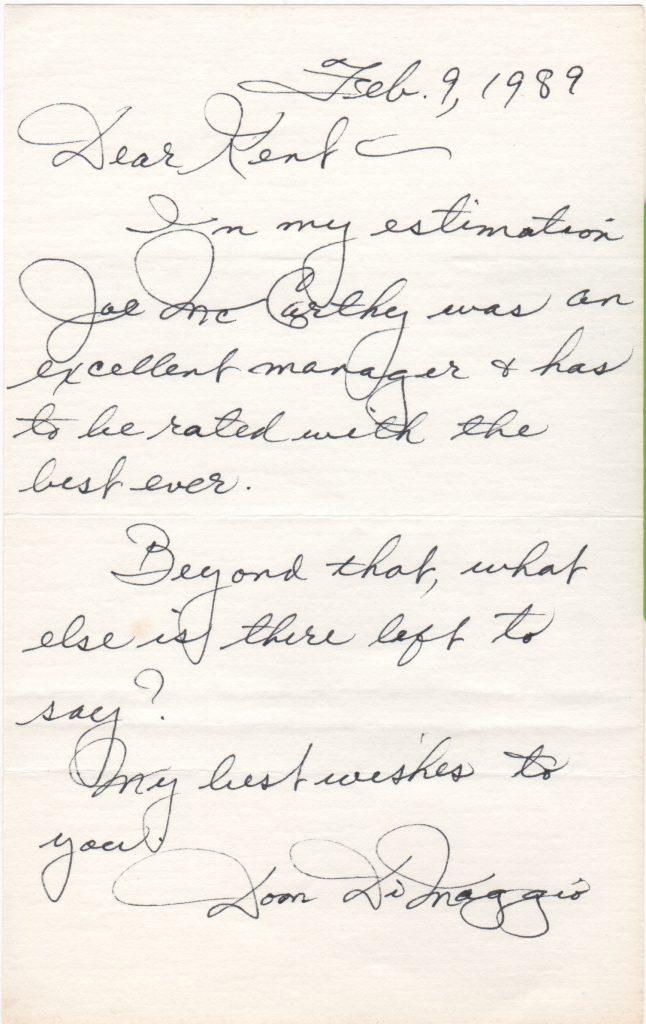 Feb. 9, 1989
Dear Kent —
In my estimation
Joe McCarthy was an
excellent manager & has
to be rated with the
best ever.
Beyond that, what
else is there left to
say?
My best wishes to
you.
Dom DiMaggio